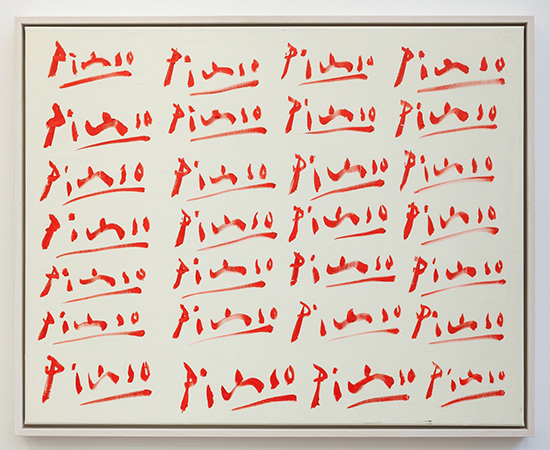 Picasso Picasso Picasso Picasso
Picasso Picasso Picasso Picasso
Picasso Picasso Picasso Picasso
Picasso Picasso Picasso Picasso
Picasso Picasso Picasso Picasso
Picasso Picasso Picasso Picasso
Picasso Picasso Picasso Picasso